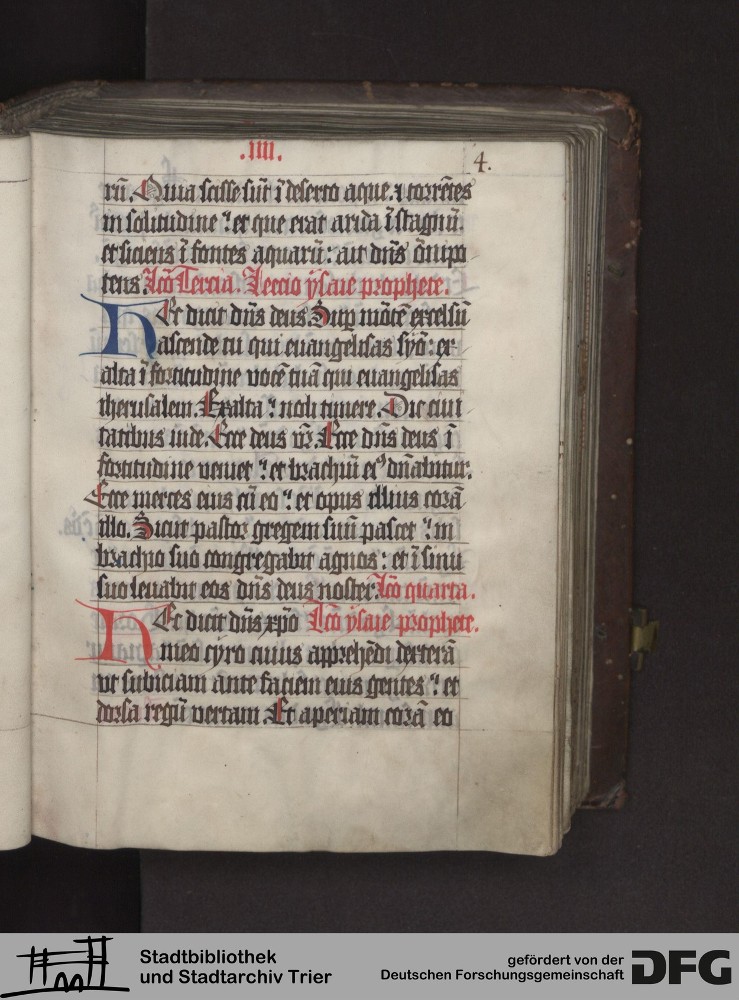 .IIII.
4.
rū. Quia scisse sūt ī deserto aque. ⁊ torrētes
in solitudine : et que erat arida ī stagnū.
et siciens ī fontes aquarū : ait dn̄s ōmipo
tens. Lcō Tercia. Leccio ysaie prophete.
Hec dicit dn̄s deus. Sup mōtē excelsū
ascende tu qui euangelisas syō : ex
alta ī fortitudine vocē tuā qui euangelisas
iherusalem. Exalta : noli timere. Dic ciui
tatibus iude. Ecce deus vr̄. Ecce dn̄s deus ī
fortitudine veniet : et brachiū ei⁹ dn̄abitur.
Ecce merces eius cū eo : et opus illius corā
illo. Sicut pastor gregem suū pascet : in
brachio suo congregabit agnos : et ī sinu
suo leuabit eos dn̄s deus noster. Lcō quarta.
Hec dicit dn̄s xp̄o Lcō ysaie prophete.
meo cyro cuius apprehēdi dexterā
vt subiciam ante faciem eius gentes : et
dorsa regū vertam. Et aperiam corā eo
Stadtbibliothek
und Stadtarchiv Trier
gefördert von der
Deutschen Forschungsgemeinschaft
DFG